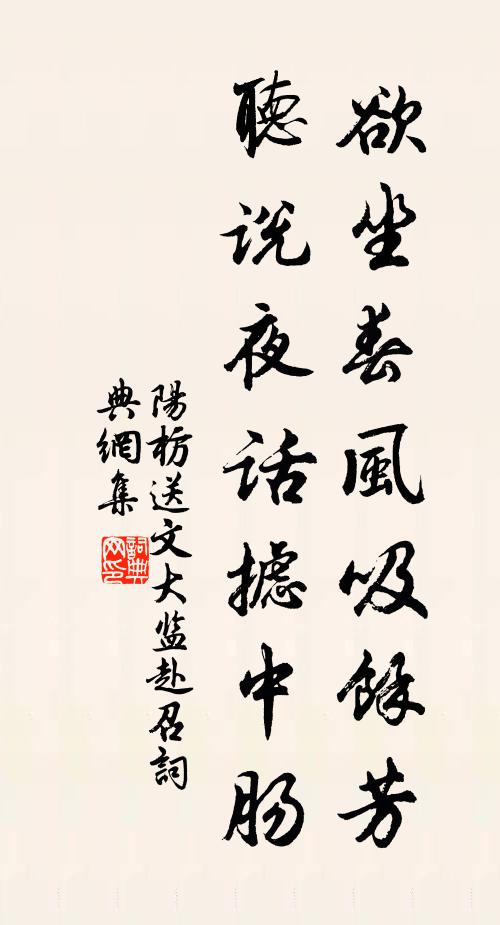 欲坐春風吸餘芳
聽说夜话攄中腸
陽枋送文大监赴召詞
典網集
詞典网印